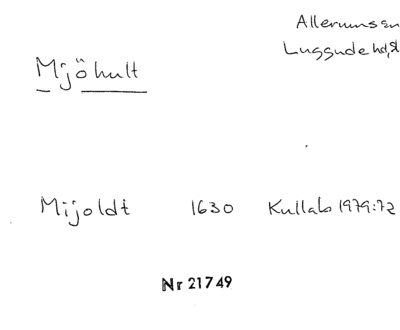 Allerums sn
Luggude hd, Sk
Mjöhult
Mijoldt 1630 Kullab 1979:72
Nr 21749